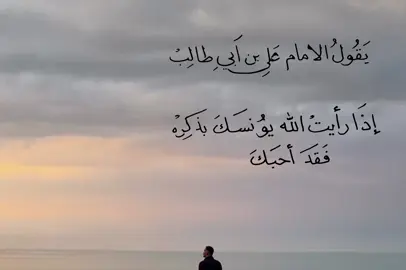 يَقُولُ الامام عَلي بن اَبي طالِبْ
إذَا رأيتْ الله يوُنسَكَ بذكِرهْ
فَقَدَ أحبَكَ